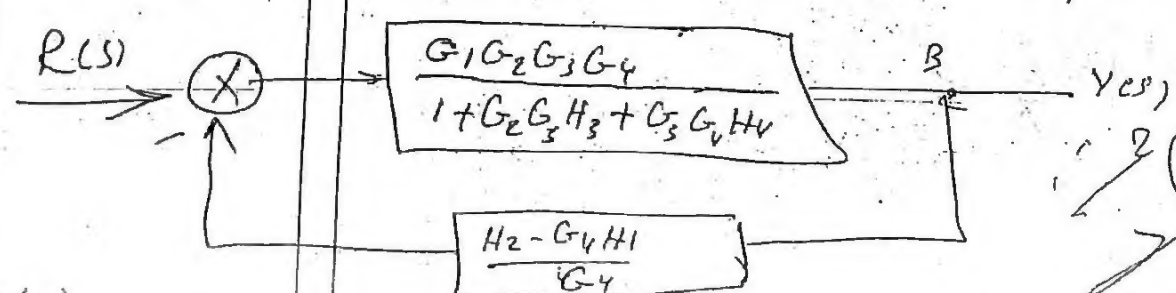 R(S)
X
G1G2G3G4
1+G2G3H3+G3G4H4
B
Y(S)
-
2
H2-G4H1
G4